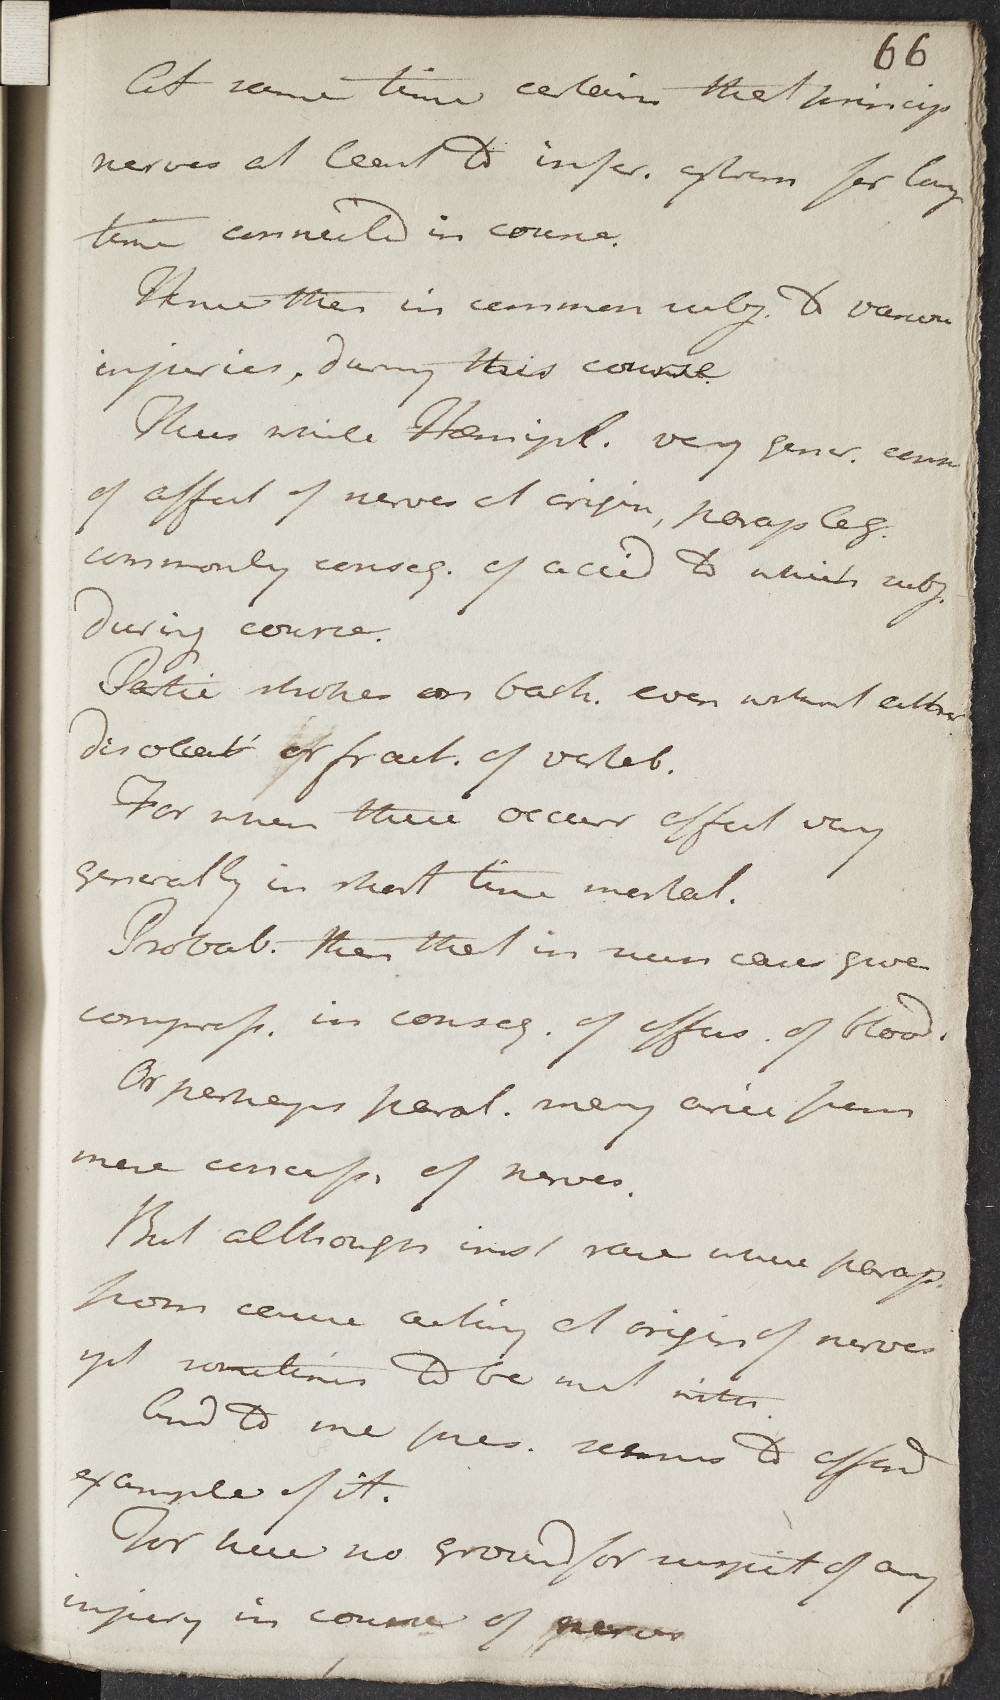 66
At same time certain that princip
nerves at least to infer. extrem for long
time connected in course.
Hence then in common subj. to various
injuries, during this course
Thus while Hemipl. very gener. conseq
of affect of nerves at origin, parapleg.
commonly conseq. of accid to which subj.
during course.
Partic strokes on back. even without either
dislocat or fract. of verteb.
For when these occurr effect very
generally in short time mortal.
Probab. then that in such case gives
compress. in conseq. of effus. of blood.
Or perhaps paral. may arise from
mere concuss. of nerves.
But although inst rare where parap.
from cause acting at origin of nerves
yet sometimes to be met with.
And to me pres. seems to afford
example of it.
For here no ground for suspit of any
injury in course of nerves